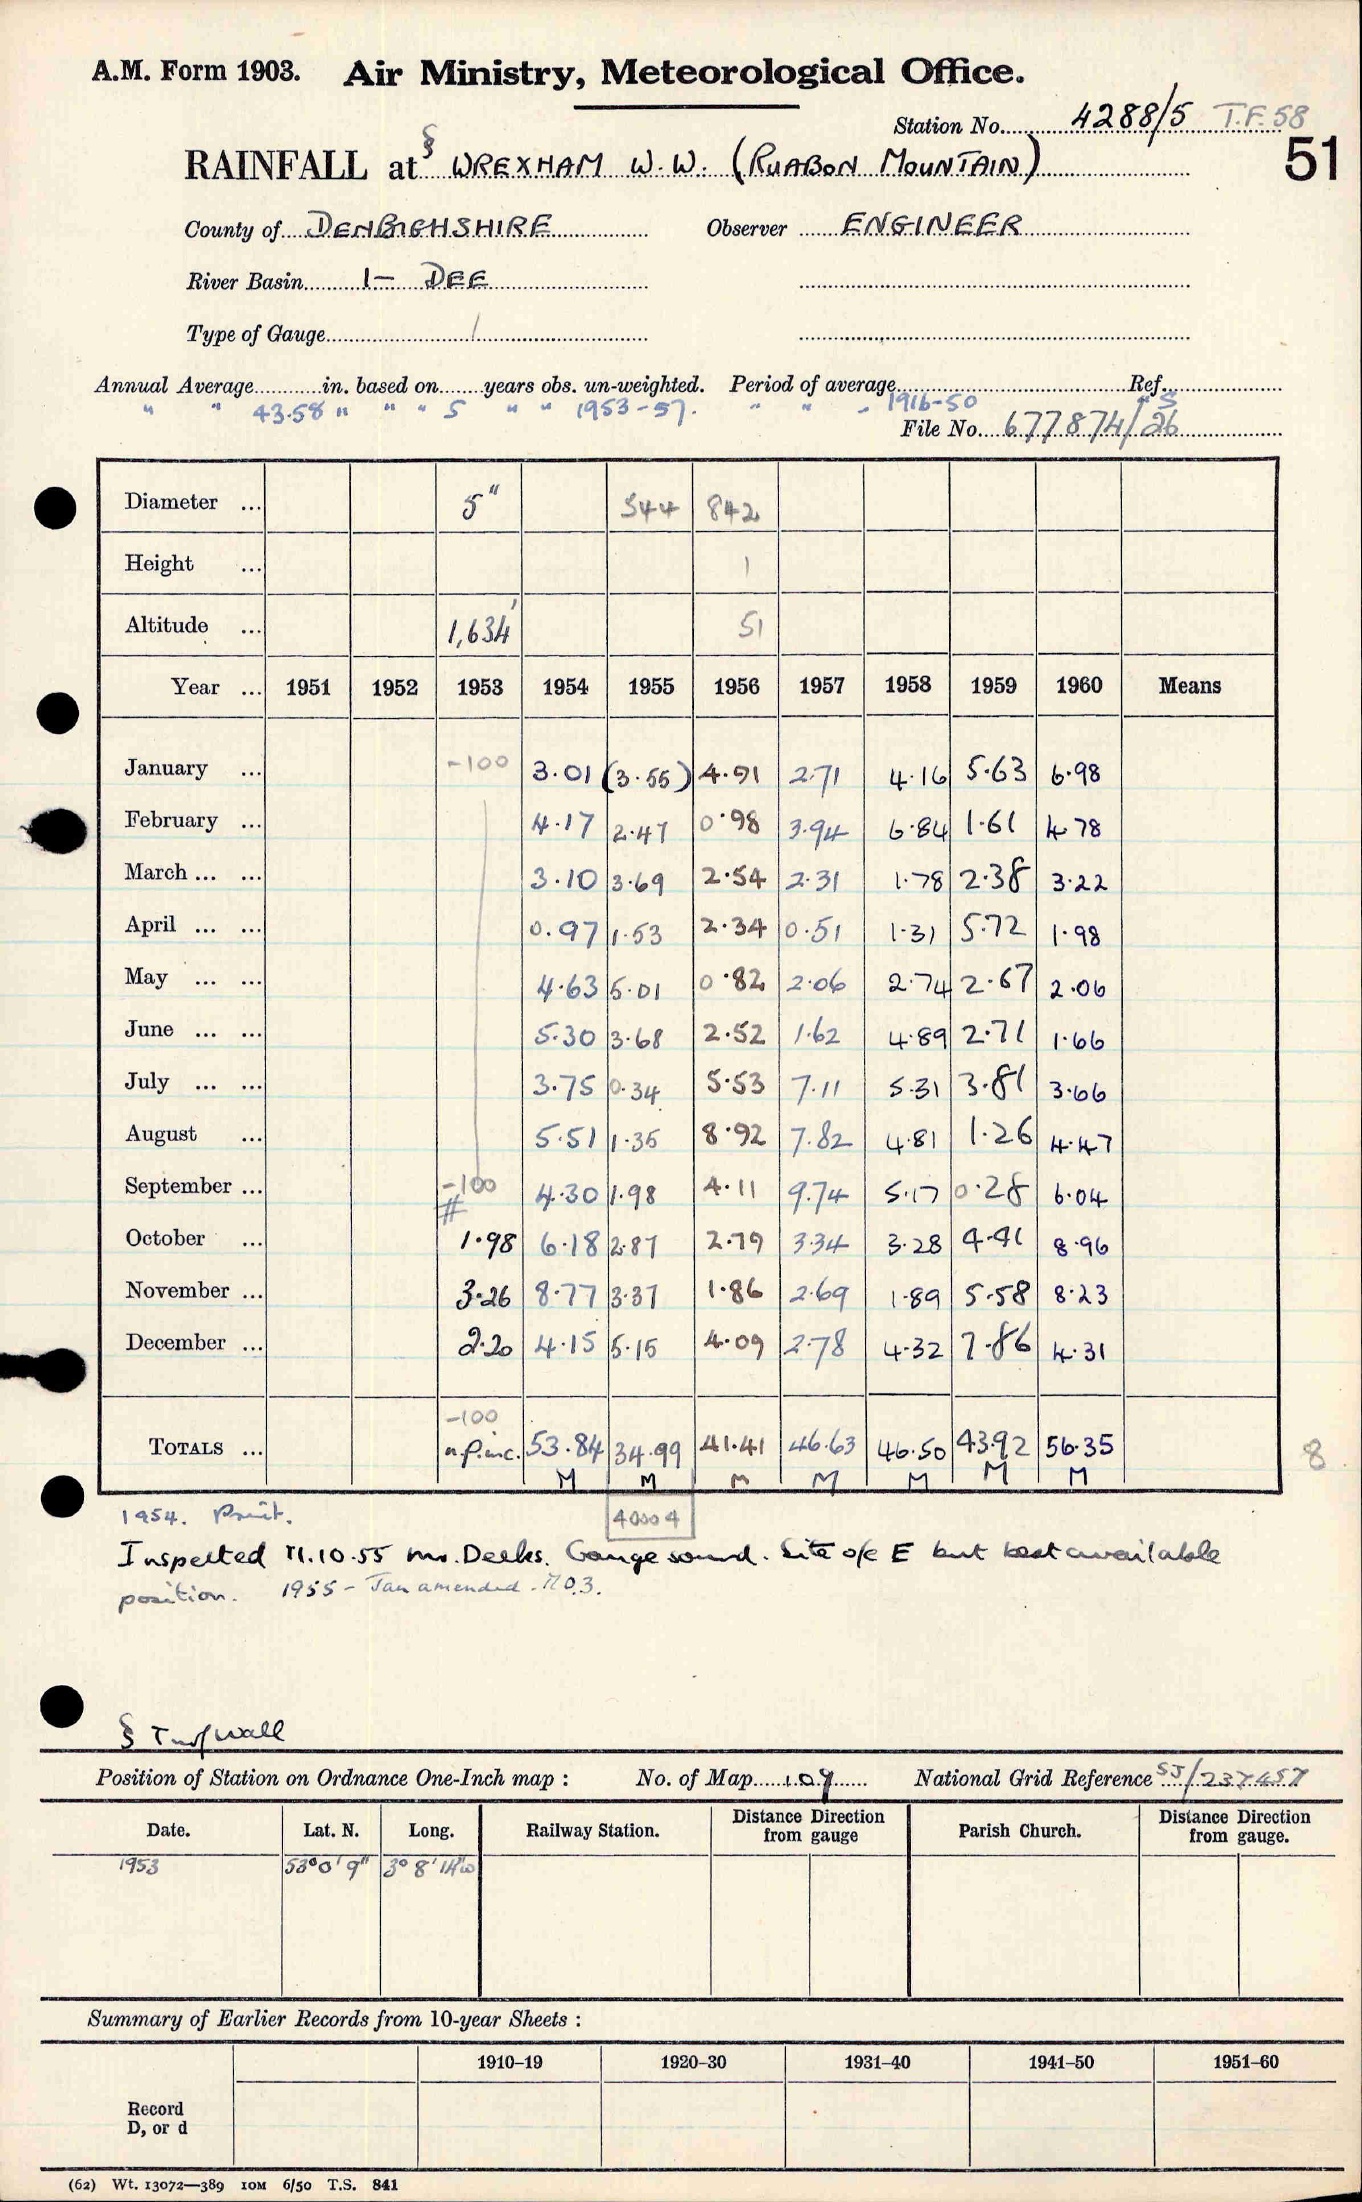 A.M. Form 1903. Air Ministry, Meteorological Office.
Station No. 4288/5 T.F. 58
51
RAINFALL at § WREXHAM W.W. (RUABON MOUNTAIN)
County of DENBIGHSHIRE Observer ENGINEER
River Basin 1- DEE
Type of Gauge
Annual Average in. based on years obs. un-weighted. Period of average Ref.
" " 43.58 " " " 5 " " 1953-57. " " " 1916-50 " 5
File No. 677874/26
Diameter ... 5" 544 842
Height ... 1
Altitude ... 1,634' 51
Year ... 1951 1952 1953 1954 1955 1956 1957 1958 1959 1960 Means
January ... -100 3.01 (3.55) 4.91 2.71 4.16 5.63 6.98
February ... 4.17 2.47 0.98 3.94 6.84 1.61 4.78
March ... ... 3.10 3.69 2.54 2.31 1.78 2.38 3.22
April ... ... 0.97 1.53 2.34 0.51 1.31 5.72 1.98
May ... ... 4.63 5.01 0.82 2.06 2.74 2.67 2.06
June ... ... 5.30 3.68 2.52 1.62 4.89 2.71 1.66
July ... ... 3.75 0.34 5.53 7.11 5.31 3.81 3.66
August ... 5.51 1.35 8.92 7.82 4.81 1.26 4.47
September ... -100 4.30 1.98 4.11 9.74 5.17 0.28 6.04
#
October ... 1.98 6.18 2.87 2.79 3.34 3.28 4.41 8.96
November ... 3.26 8.77 3.37 1.86 2.69 1.89 5.58 8.23
December ... 2.20 4.15 5.15 4.09 2.78 4.32 7.86 4.31
-100
TOTALS ... n.p.inc. 53.84 34.99 41.41 46.63 46.50 43.92 56.35
M M M M M M M
8
1954. Print. 40004
Inspected 11.10.55 Mr. Deeks. Gauge sound. Site o/e E but best available
position. 1955 - Jan amended. M.O.3.
§ Turf wall
Position of Station on Ordnance One-Inch map : No. of Map 109 National Grid Reference SJ/237457
Date. Lat. N. Long. Railway Station. Distance Direction from gauge Parish Church. Distance Direction from gauge.
1953 53°0'9" 3°8'14"W
Summary of Earlier Records from 10-year Sheets :
1910-19 1920-30 1931-40 1941-50 1951-60
Record
D, or d
(62) Wt. 13072—389 10M 6/50 T.S. 841